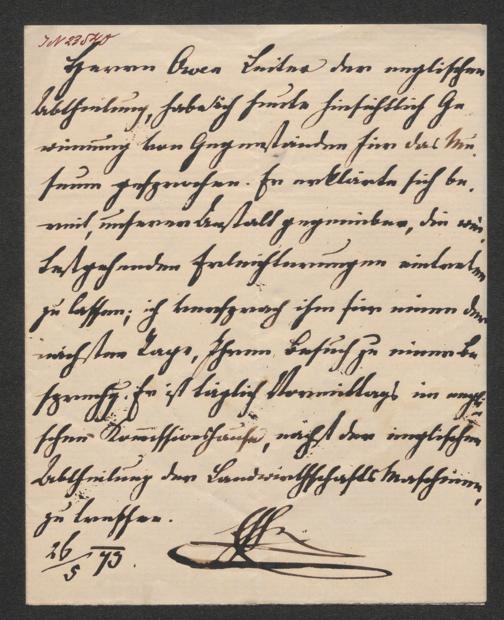 IN 23540
Herrn Owen Leiter der englischen
Abtheilung, habe ich heute hinsichtlich Ge
winnung von Gegenständen für das Mu-
seum gesprochen. Er erklärte sich be-
reit, unserer Anstalt gegenüber, die wei-
testgehenden Erleichterungen eintreten
zu lassen; ich versprach ihm für einen der
nächsten Tage, Ihren Besuch zu einer Be
sprechg. Er ist täglich Vormittags im engli-
schen Kommissionshause, nächst der englischen
Abtheilung der Landwirthschafts Maschinen,
zu treffen.
26/5 73.